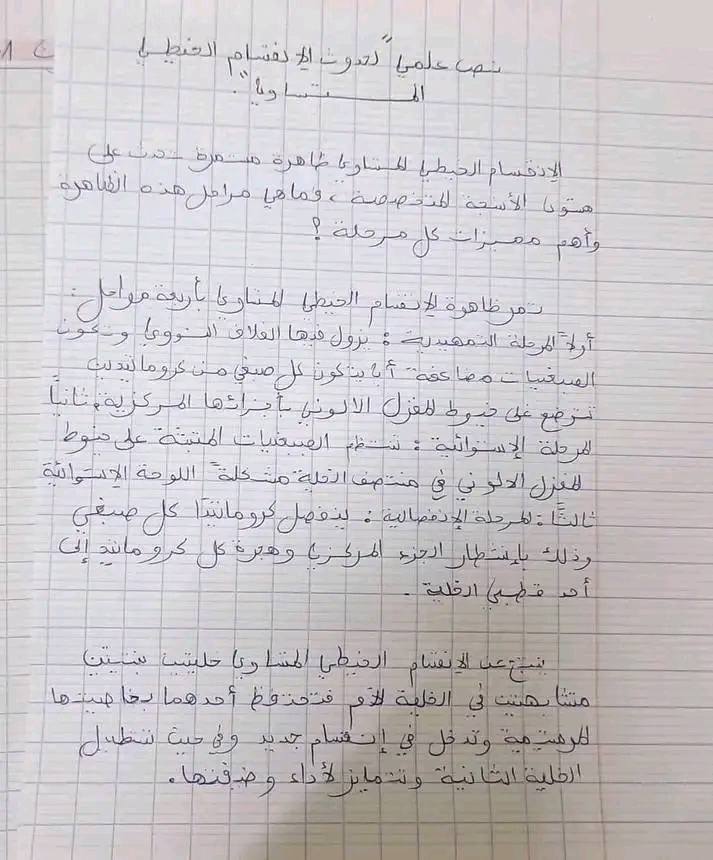 نص علمي "لحدوث الإنقسام الخيطي
المتساوي".
الإنقسام الخيطي المتساوي ظاهرة مستمرة تحدث على
مستوى الأنسجة المتخصصة، فماهي مراحل هذه الظاهرة
وأهم مميزات كل مرحلة ؟
تمر ظاهرة الإنقسام الخيطي المتساوي بأربعة مراحل:
أولاً المرحلة التمهيدية: يزول فيها الغلاف النووي وتكون
الصبغيات مضاعفة أي يتكون كل صبغي من كروماتيدين
تتوضع على خيوط المغزل الالوني بأجزائها المركزية، ثانياً
المرحلة الإستوائية: تنتظم الصبغيات المثبتة على خيوط
المغزل الالوني في منتصف الخلية مشكلةً اللوحة الإستوائية
ثالثًا: المرحلة الإنفصالية: ينفصل كروماتيدا كل صبغي
وذلك بإنشطار الجزء المركزي وهجرة كل كروماتيد إلى
أحد قطبي الخلية.
ينتج عن الإنقسام الخيطي المتساوي خليتين بنتين
متشابهتين في الخلية الأم فتحتفظ أحدهما بخاصيتها
المرستيمية وتدخل في إنقسام جديد وفي حين تستطيل
الخلية الثانية وتتمايز لأداء وضيفتها.